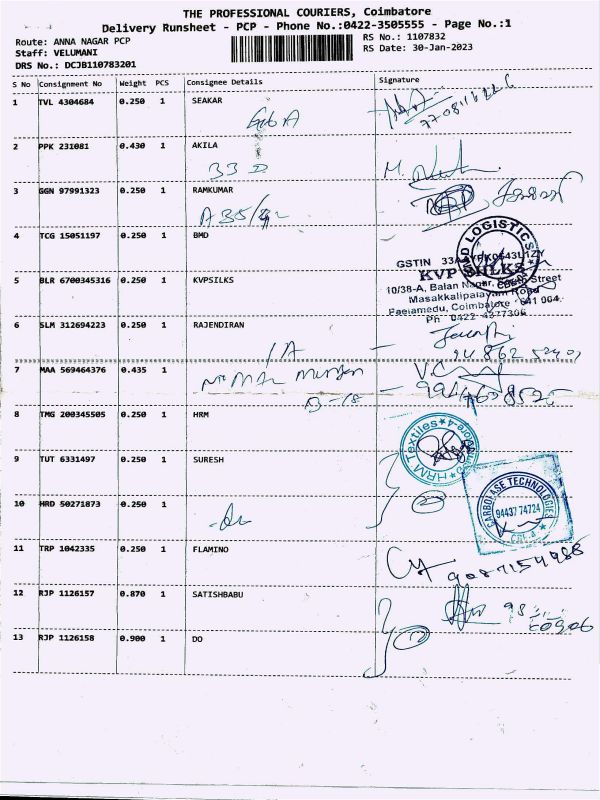 THE PROFESSIONAL COURIERS, Coimbatore
Delivery Runsheet - PCP - Phone No.:0422-3505555 - Page No.:1
Route: ANNA NAGAR PCP
Staff: VELUMANI
DRS No.: DCJB110783201
RS No.: 1107832
RS Date: 30-Jan-2023
S No Consignment No Weight PCS Consignee Details Signature
1 TVL 4304684 0.250 1 SEAKAR
2 PPK 231081 0.430 1 AKILA
33 D
3 GGN 97991323 0.250 1 RAMKUMAR
4 TCG 15051197 0.250 1 BMD
LOGISTICS
GSTIN
KVP SILKS
5 BLR 6700345316 0.250 1 KVPSILKS
10/38-A, Balan Nagar, Street
Masakkalipalayam Road
Peelamedu, Coimbatore - 641 004.
Ph 0422-4377306
6 SLM 312694223 0.250 1 RAJENDIRAN
1A
7 MAA 569464376 0.435 1
B-18
8 TMG 200345505 0.250 1 HRM
HRM Textiles
9 TUT 6331497 0.250 1 SURESH
10 HRD 50271873 0.250 1
CARBOLASE TECHNOLOGIES
94437 74724
11 TRP 1042335 0.250 1 FLAMINO
9087154988
12 RJP 1126157 0.870 1 SATISHBABU
13 RJP 1126158 0.900 1 DO